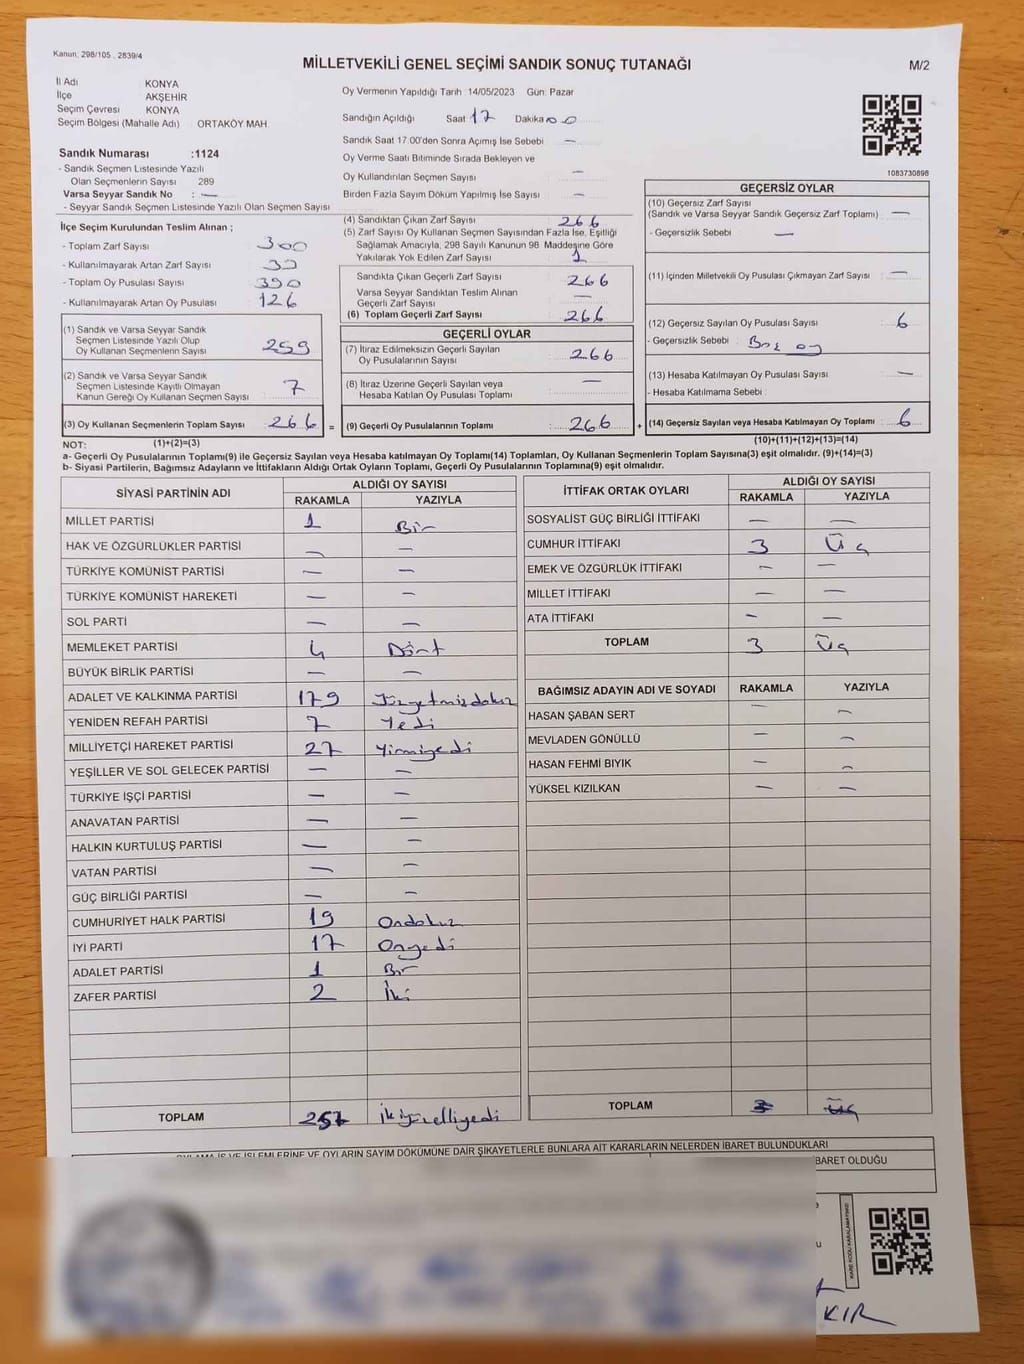 Kanun, 298/105 , 2839/4
MİLLETVEKİLİ GENEL SEÇİMİ SANDIK SONUÇ TUTANAĞI
M/2
İl Adı KONYA
İlçe AKŞEHİR
Seçim Çevresi KONYA
Seçim Bölgesi (Mahalle Adı) ORTAKÖY MAH
Sandık Numarası :1124
- Sandık Seçmen Listesinde Yazılı
Olan Seçmenlerin Sayısı 289
Varsa Seyyar Sandık No : —
- Seyyar Sandık Seçmen Listesinde Yazılı Olan Seçmen Sayısı
Oy Vermenin Yapıldığı Tarih :14/05/2023 Gün: Pazar
Sandığın Açıldığı Saat 17 Dakika 00
Sandık Saat 17:00'den Sonra Açımış İse Sebebi —
Oy Verme Saati Bitiminde Sırada Bekleyen ve
Oy Kullandırılan Seçmen Sayısı —
Birden Fazla Sayım Döküm Yapılmış İse Sayısı —
1083730898
İlçe Seçim Kurulundan Teslim Alınan ;
- Toplam Zarf Sayısı 300
- Kullanılmayarak Artan Zarf Sayısı
- Toplam Oy Pusulası Sayısı 390
- Kullanılmayarak Artan Oy Pusulası 126
(1) Sandık ve Varsa Seyyar Sandık
Seçmen Listesinde Yazılı Olup
Oy Kullanan Seçmenlerin Sayısı 259
(2) Sandık ve Varsa Seyyar Sandık
Seçmen Listesinde Kayıtlı Olmayan
Kanun Gereği Oy Kullanan Seçmen Sayısı 7
(3) Oy Kullanan Seçmenlerin Toplam Sayısı 266 =
(4) Sandıktan Çıkan Zarf Sayısı 266
(5) Zarf Sayısı Oy Kullanan Seçmen Sayısından Fazla İse, Eşitliği
Sağlamak Amacıyla, 298 Sayılı Kanunun 98. Maddesine Göre
Yakılarak Yok Edilen Zarf Sayısı 1
Sandıkta Çıkan Geçerli Zarf Sayısı 266
Varsa Seyyar Sandıktan Teslim Alınan
Geçerli Zarf Sayısı —
(6) Toplam Geçerli Zarf Sayısı 266
GEÇERLİ OYLAR
(7) İtiraz Edilmeksizin Geçerli Sayılan
Oy Pusulalarının Sayısı 266
(8) İtiraz Üzerine Geçerli Sayılan veya
Hesaba Katılan Oy Pusulası Toplamı —
(9) Geçerli Oy Pusulalarının Toplamı 266 +
GEÇERSİZ OYLAR
(10) Geçersiz Zarf Sayısı
(Sandık ve Varsa Seyyar Sandık Geçersiz Zarf Toplamı) —
- Geçersizlik Sebebi —
(11) İçinden Milletvekili Oy Pusulası Çıkmayan Zarf Sayısı —
(12) Geçersiz Sayılan Oy Pusulası Sayısı : 6
- Geçersizlik Sebebi : Boş oy
(13) Hesaba Katılmayan Oy Pusulası Sayısı —
- Hesaba Katılmama Sebebi :
(14) Geçersiz Sayılan veya Hesaba Katılmayan Oy Toplamı : 6
NOT: (1)+(2)=(3) (10)+(11)+(12)+(13)=(14)
a- Geçerli Oy Pusulalarının Toplamı(9) ile Geçersiz Sayılan veya Hesaba katılmayan Oy Toplamı(14) Toplamları, Oy Kullanan Seçmenlerin Toplam Sayısına(3) eşit olmalıdır. (9)+(14)=(3)
b- Siyasi Partilerin, Bağımsız Adayların ve İttifakların Aldığı Ortak Oyların Toplamı, Geçerli Oy Pusulalarının Toplamına(9) eşit olmalıdır.
SİYASİ PARTİNİN ADI ALDIĞI OY SAYISI
RAKAMLA YAZIYLA
MİLLET PARTİSİ 1 Bir
HAK VE ÖZGÜRLÜKLER PARTİSİ — —
TÜRKİYE KOMÜNİST PARTİSİ — —
TÜRKİYE KOMÜNİST HAREKETİ — —
SOL PARTİ — —
MEMLEKET PARTİSİ 4 Dört
BÜYÜK BİRLİK PARTİSİ — —
ADALET VE KALKINMA PARTİSİ 179 Yüzyetmişdokuz
YENİDEN REFAH PARTİSİ 7 Yedi
MİLLİYETÇİ HAREKET PARTİSİ 27 Yirmiyedi
YEŞİLLER VE SOL GELECEK PARTİSİ — —
TÜRKİYE İŞÇİ PARTİSİ — —
ANAVATAN PARTİSİ — —
HALKIN KURTULUŞ PARTİSİ — —
VATAN PARTİSİ — —
GÜÇ BİRLİĞİ PARTİSİ — —
CUMHURİYET HALK PARTİSİ 19 Ondokuz
İYİ PARTİ 17 Onyedi
ADALET PARTİSİ 1 Bir
ZAFER PARTİSİ 2 İki
TOPLAM 257 İkiyüzelliyedi
İTTİFAK ORTAK OYLARI ALDIĞI OY SAYISI
RAKAMLA YAZIYLA
SOSYALİST GÜÇ BİRLİĞİ İTTİFAKI — —
CUMHUR İTTİFAKI 3 Üç
EMEK VE ÖZGÜRLÜK İTTİFAKI — —
MİLLET İTTİFAKI — —
ATA İTTİFAKI — —
TOPLAM 3 Üç
BAĞIMSIZ ADAYIN ADI VE SOYADI RAKAMLA YAZIYLA
HASAN ŞABAN SERT — —
MEVLADEN GÖNÜLLÜ — —
HASAN FEHMİ BIYIK — —
YÜKSEL KIZILKAN — —
TOPLAM 3 Üç
OYLAMA İŞ VE İŞLEMLERİNE VE OYLARIN SAYIM DÖKÜMÜNE DAİR ŞİKAYETLERLE BUNLARA AİT KARARLARIN NELERDEN İBARET BULUNDUKLARI
BARET OLDUĞU
KARE KODU KARALAMAYINIZ!
KIR